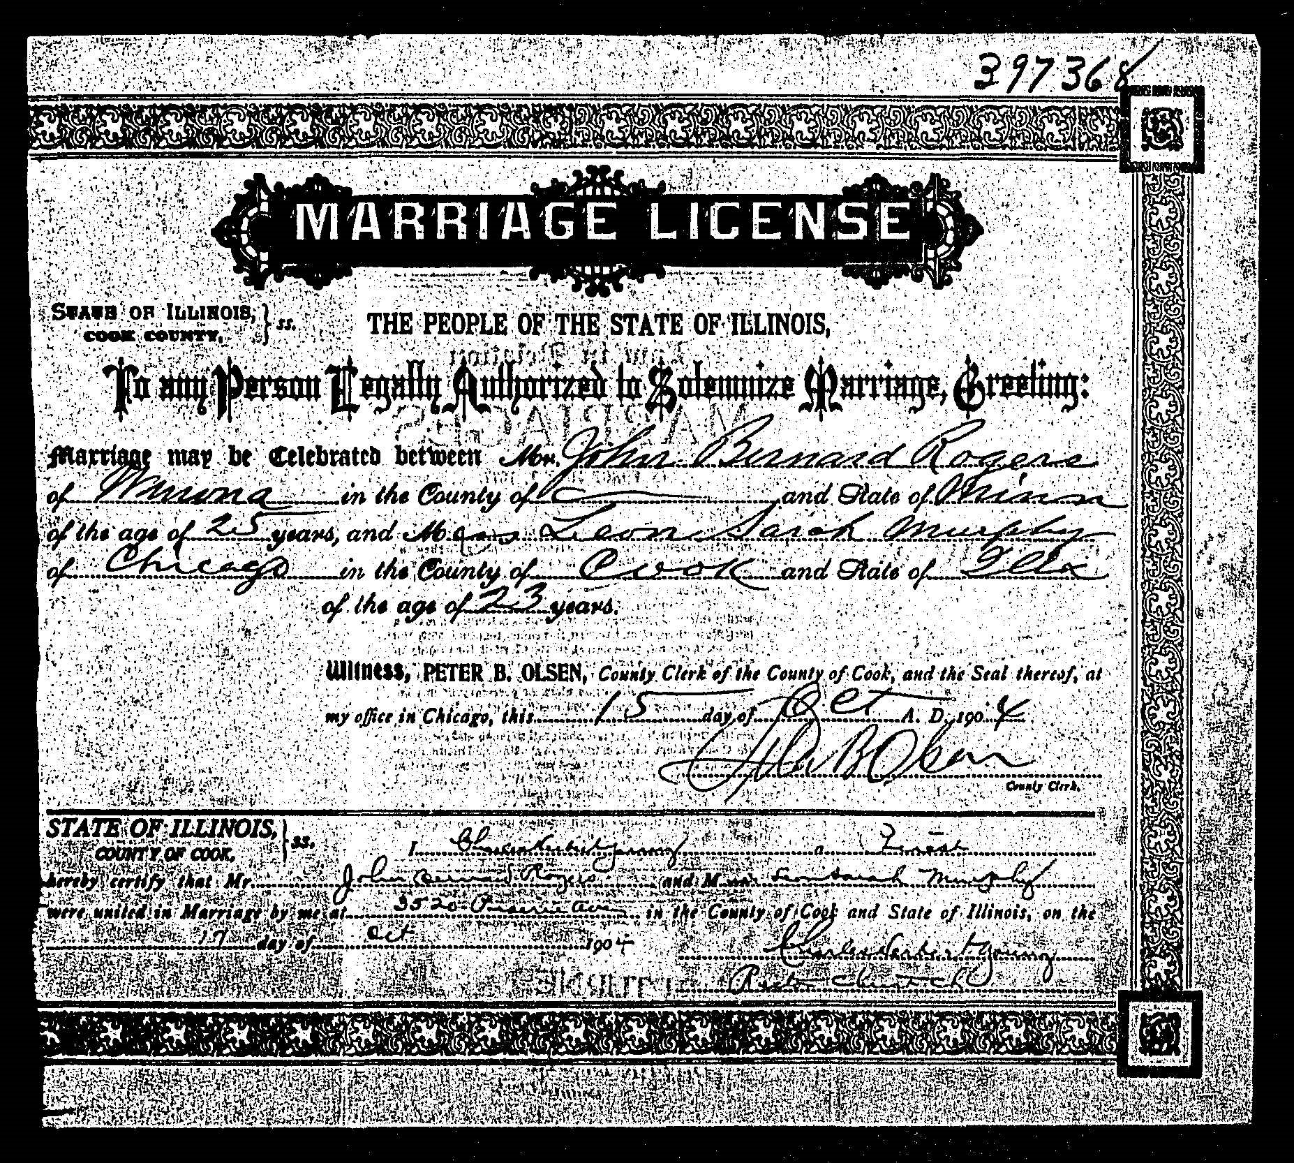 397368
MARRIAGE LICENSE
STATE OF ILLINOIS, } ss.
COOK COUNTY,
THE PEOPLE OF THE STATE OF ILLINOIS,
To any Person Legally Authorized to Solemnize Marriage, Greeting:
Marriage may be Celebrated between Mr. John Bernard Rogers
of Winona in the County of and State of Minn
of the age of 25 years, and M Leon Sarah Murphy
of Chicago in the County of Cook and State of Ills
of the age of 23 years.
Witness, PETER B. OLSEN, County Clerk of the County of Cook, and the Seal thereof, at
my office in Chicago, this 15 day of Oct A. D. 1904
Peter B Olsen
County Clerk.
STATE OF ILLINOIS, } ss.
COUNTY OF COOK,
I Charles Herbert Young a Priest
hereby certify that Mr. John Bernard Rogers and M Leon Sarah Murphy
were united in Marriage by me at 3520 Ave in the County of Cook and State of Illinois, on the
17 day of Oct 1904
Charles Herbert Young
Christ Ch